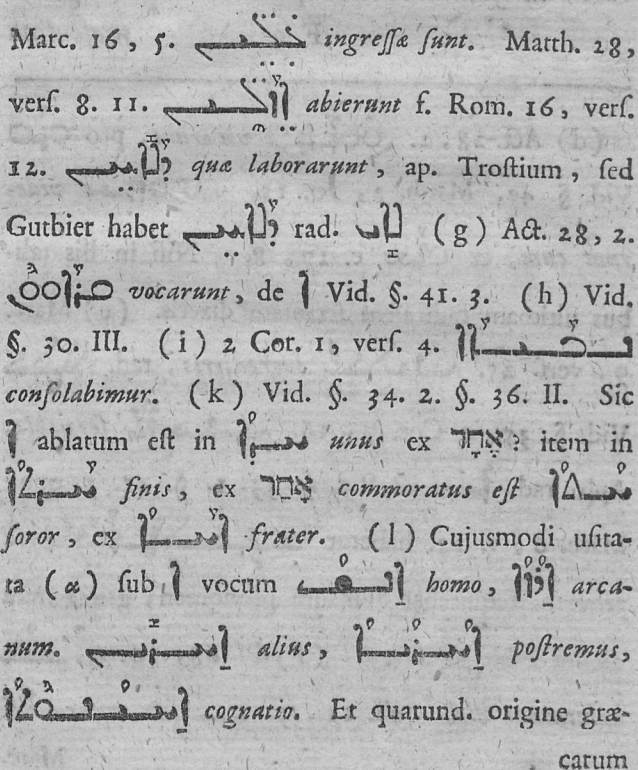 Marc. 16, 5. ingreſſæ ſunt. Matth. 28,
verſ. 8. 11. abierunt ſ. Rom. 16, verſ.
12. quæ laborarunt, ap. Troſtium, ſed
Gutbier habet rad. ܠܐܝ (g) Act. 28, 2.
vocarunt, de ܐ Vid. §. 41. 3. (h) Vid.
§. 30. III. (i) 2 Cor. 1, verſ. 4.
conſolabimur. (k) Vid. §. 34. 2. §. 36. II. Sic
ܐ ablatum eſt in unus ex item in
ܚܪܬܐ finis, ex commoratus eſt ܚܬܐ
ſoror, ex ܐܚܐ frater. (l) Cujusmodi uſita-
ta (α) ſub ܐ vocum homo, arca-
num. ܐܚܪܝܢ alius, ܐܚܪܝܐ poſtremus,
cognatio. Et quarund. origine græ-
carum